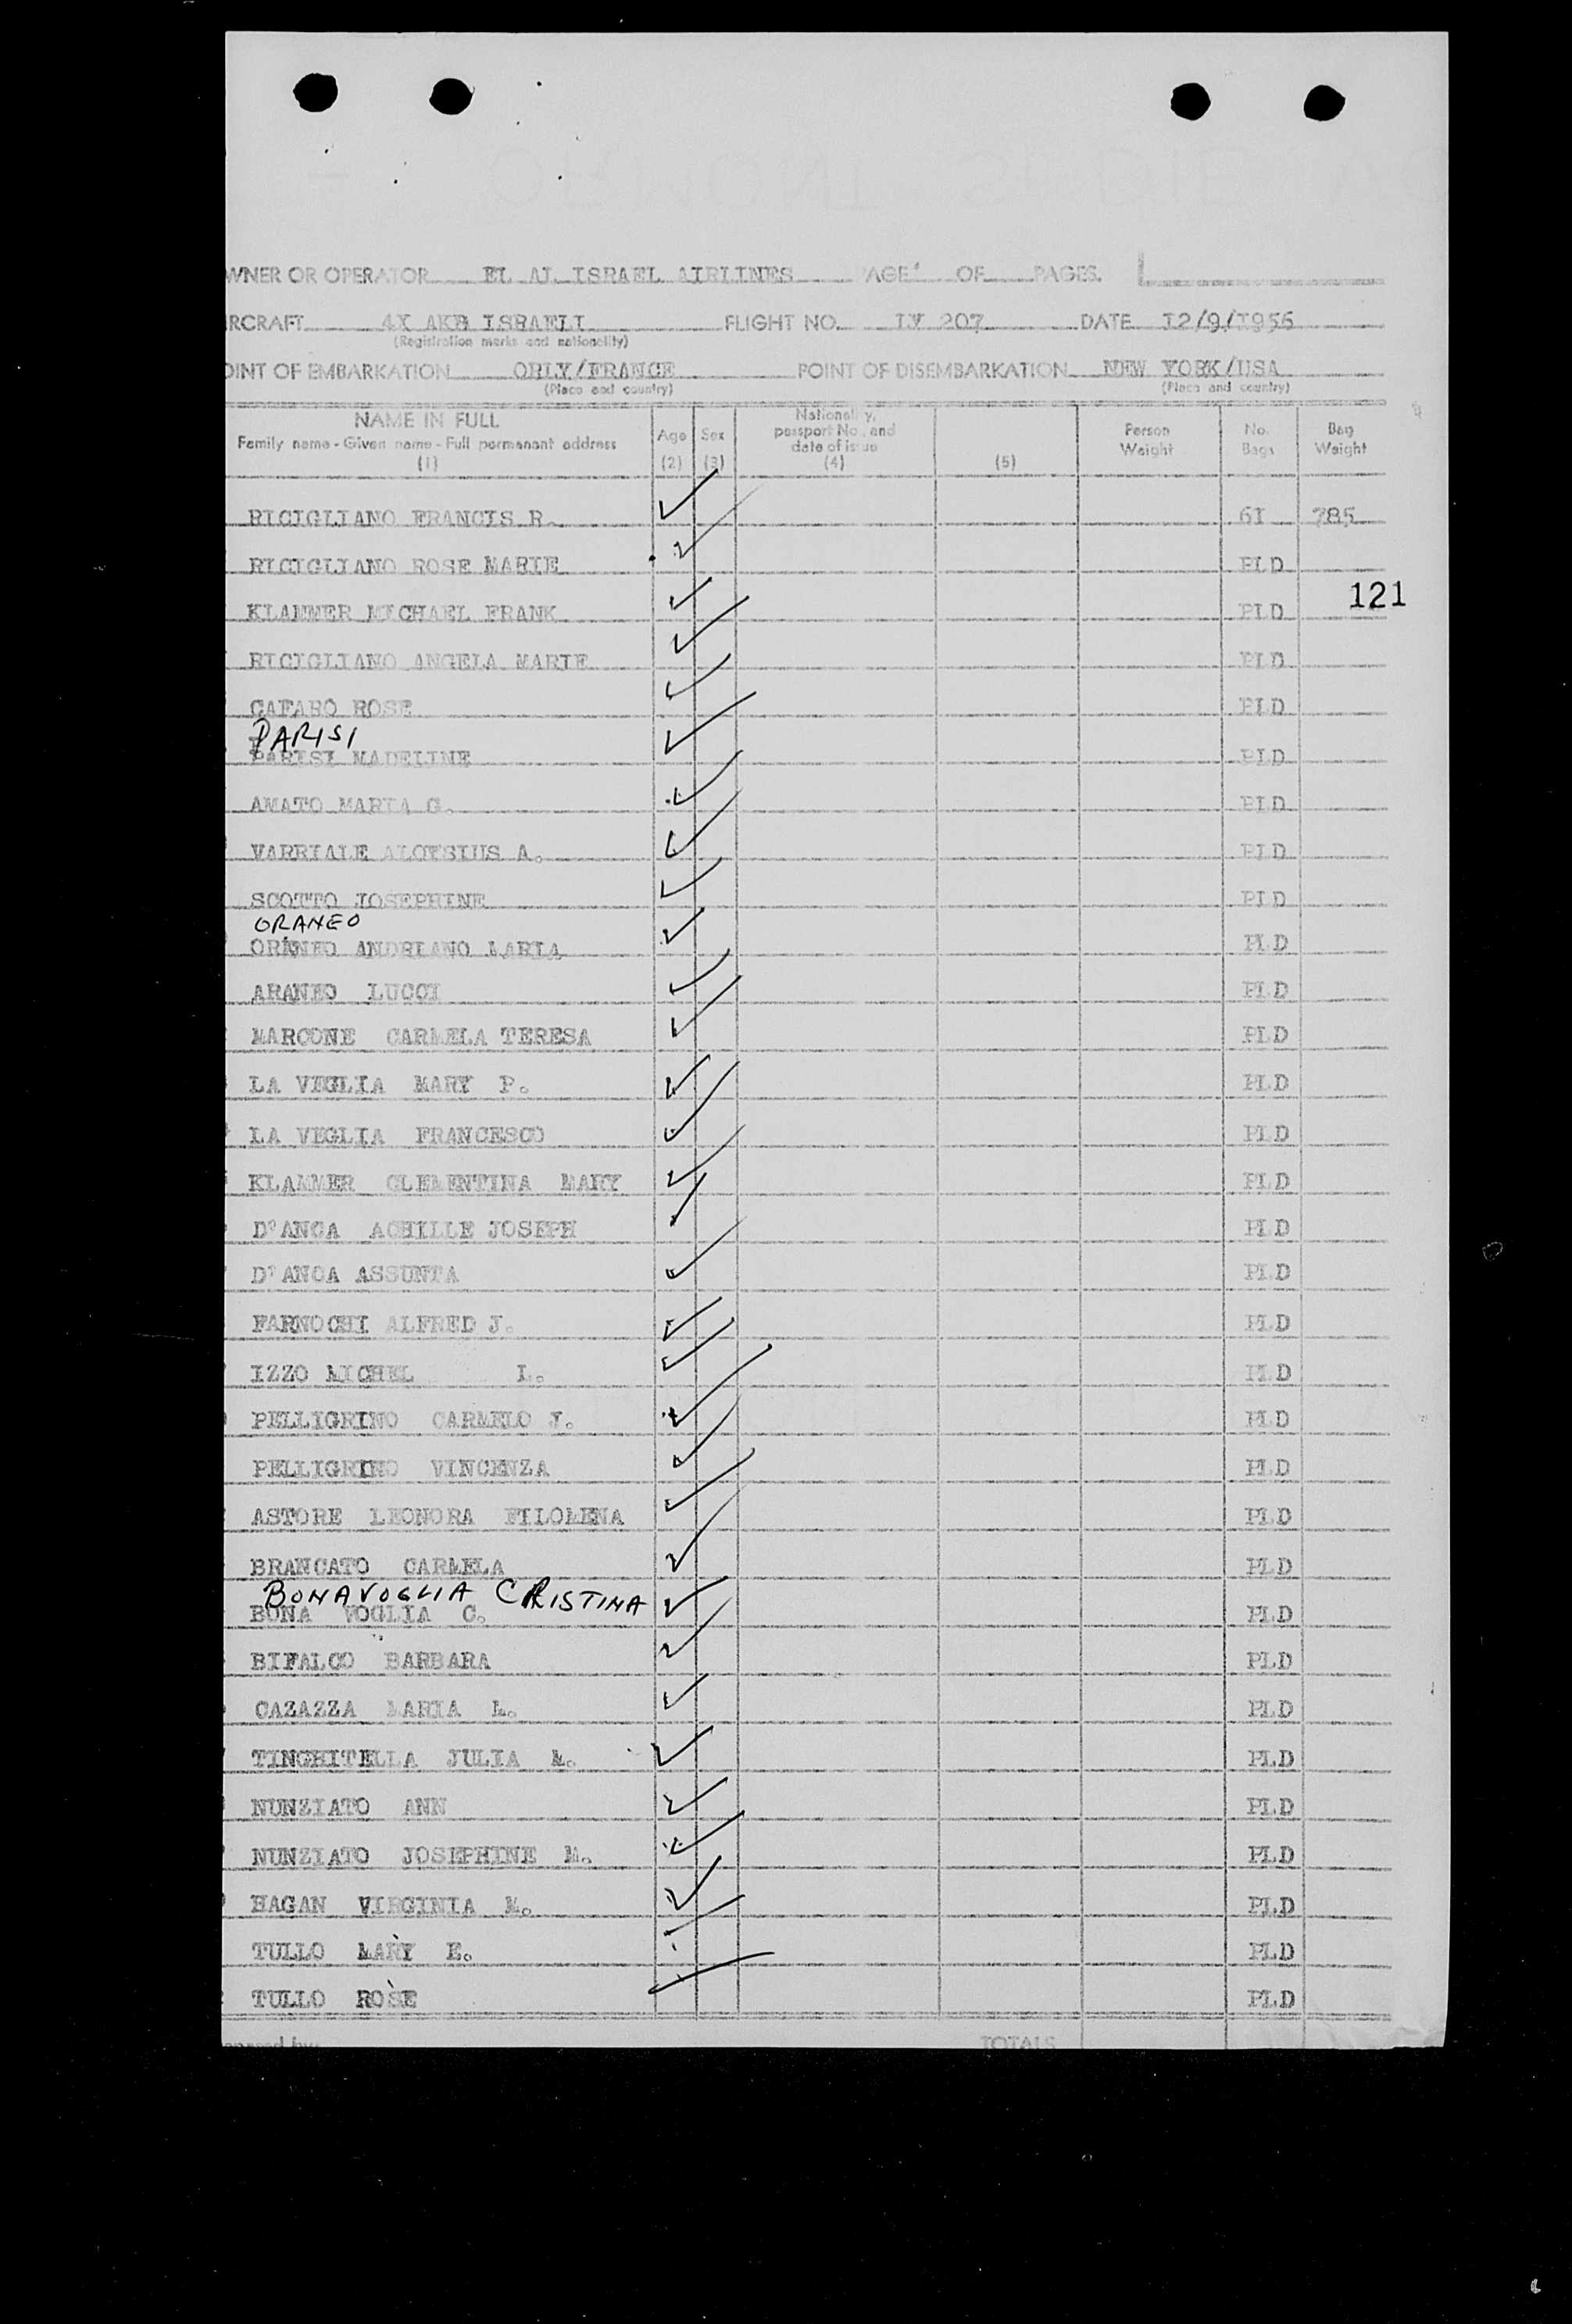 WNER OR OPERATOR EL AL ISRAEL AIRLINES PAGE OF PAGES.
RCRAFT 4X AKB ISRAELI FLIGHT NO. LY 207 DATE I2/9/I956
(Registration marks and nationality)
OINT OF EMBARKATION ORLY/FRANCE POINT OF DISEMBARKATION NEW YORK/USA
(Place and country) (Place and country)
NAME IN FULL
Family name - Given name - Full permanent address
(1)
Age
(2)
Sex
(3)
Nationality,
passport No., and
date of issue
(4)
(5)
Person
Weight
No.
Bags
Bag
Weight
RICIGLIANO FRANCIS R. 6I 785
RICIGLIANO ROSE MARIE PLD
121
KLAMMER MICHAEL FRANK PLD
RICIGLIANO ANGELA MARIE PLD
CAFARO ROSE PLD
PARISI
PARISI MADELINE PLD
AMATO MARIA G. PLD
VARRIALE ALOYSIUS A. PLD
SCOTTO JOSEPHINE PLD
ORANEO
ORANEO ANDRIANO MARIA PLD
ARANEO LUCCI PLD
MARCONE CARMELA TERESA PLD
LA VEGLIA MARY P. PLD
LA VEGLIA FRANCESCO PLD
KLAMMER CLEMENTINA MARY PLD
D'ANCA ACHILLE JOSEPH PLD
D'ANCA ASSUNTA PLD
FARNOCHI ALFRED J. PLD
IZZO MICHEL L. PLD
PELLIGRINO CARMELO J. PLD
PELLIGRINO VINCENZA PLD
ASTORE LEONORA FILOMENA PLD
BRANCATO CARMELA PLD
BONAVOGLIA CRISTINA
BONA VOGLIA C. PLD
BIFALCO BARBARA PLD
CAZAZZA MARIA L. PLD
TINGHITELLA JULIA M. PLD
NUNZIATO ANN PLD
NUNZIATO JOSEPHINE M. PLD
HAGAN VIRGINIA M. PLD
TULLO MARY E. PLD
TULLO ROSE PLD
TOTALS